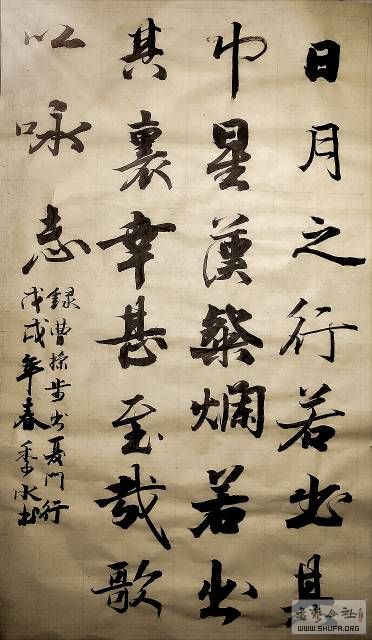 日月之行若出其
中星漢粲爛若出
其裏幸甚至哉歌
以咏志
録曹操步出夏門行
戊戌年春
书艺公社
WWW.SHUFA.ORG